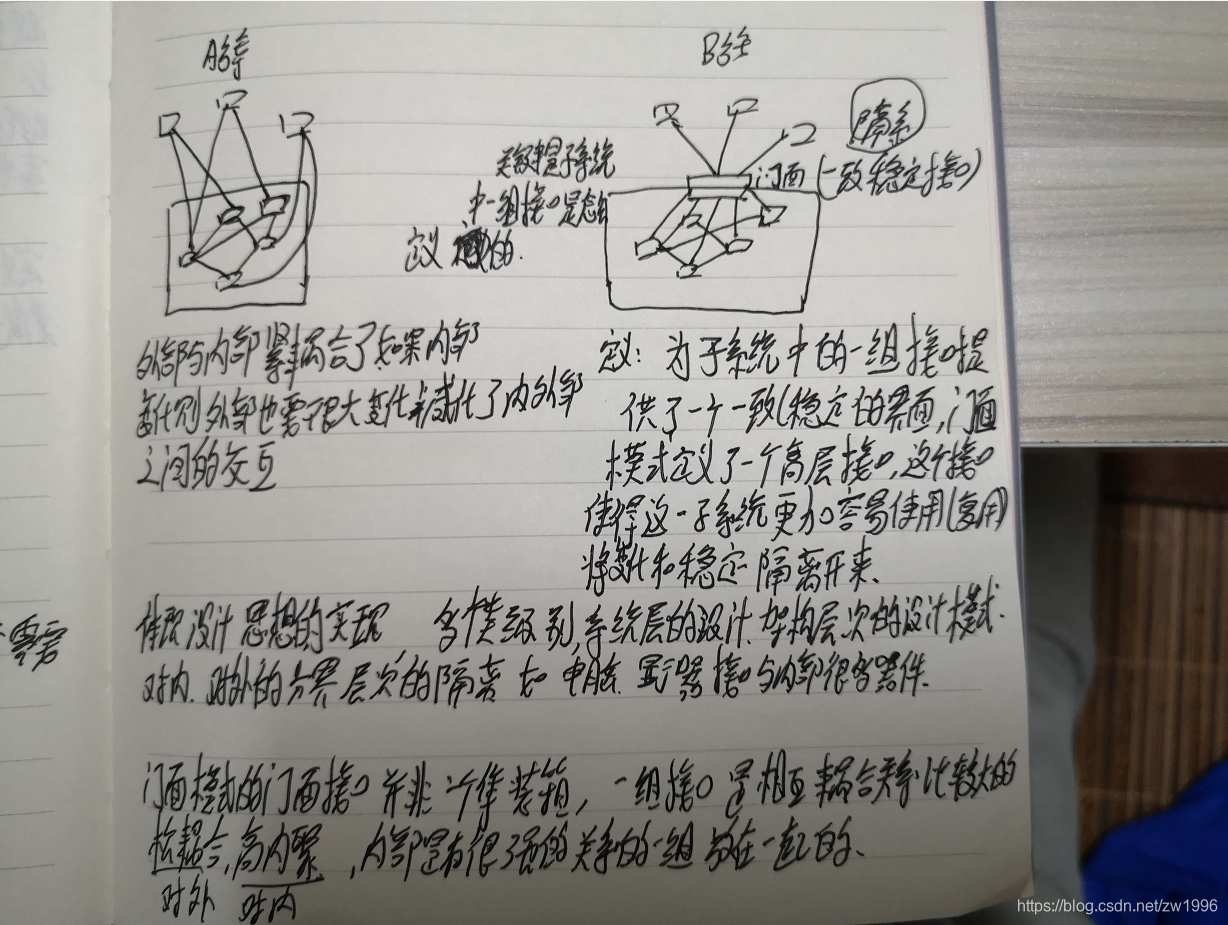 A
B
隔
门面(一致稳定接口)
子系统
中一组接口是
定义 的.
外部与内部紧耦合了如果内部
变化则外部也需很大变化 减化了内外部
之间的交互
定义: 为子系统中的一组接口提
供了一个一致(稳定)的界面,门面
模式定义了一个高层接口,这个接口
使得这一子系统更加容易使用(复用)
将变化和稳定隔离开来.
体现设计思想的实现 级别,系统层的设计.架构层次的设计模式.
对内.对外的分界层次的隔离 如 电脑.显示器接口与内部很多器件.
门面模式的门面接口并非一个集装箱, 一组接口是相互耦合关系比较大的
松耦合,高内聚,内部是有很强的关系的一组放在一起的.
对外 对内
https://blog.csdn.net/zw1996